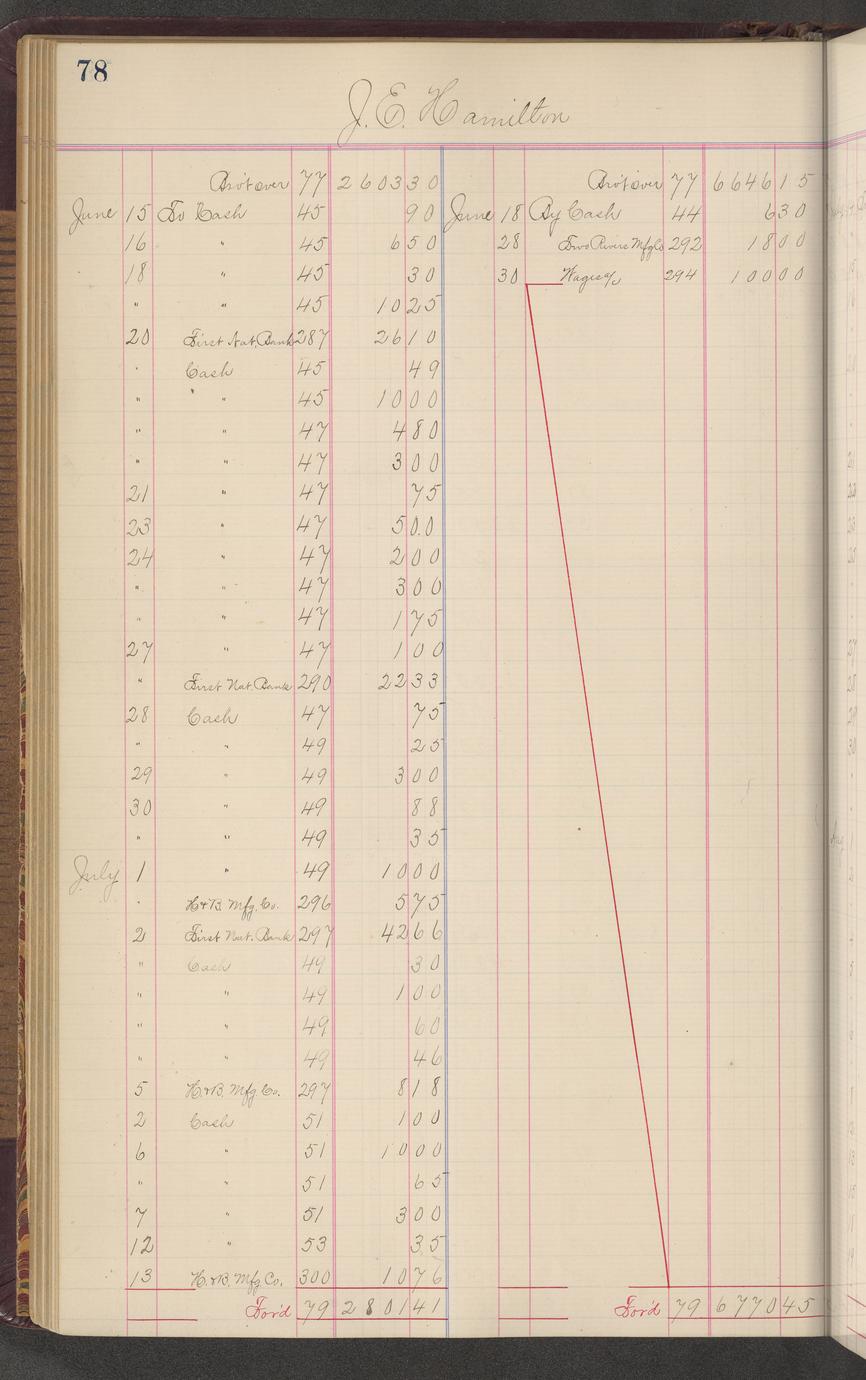 78
J. E. Hamilton
Bro't over 77 2603 30
June 15 To Cash 45 90
16 " 45 6 50
18 " 45 30
" " 45 10 25
20 First Nat. Bank 287 26 10
" Cash 45 49
" " 45 10 00
" " 47 4 80
" " 47 3 00
21 " 47 75
23 " 47 5 00
24 " 47 2 00
" " 47 3 00
" " 47 1 75
27 " 47 1 00
" First Nat. Bank 290 22 33
28 Cash 47 75
" " 49 25
29 " 49 3 00
30 " 49 88
" " 49 35
July 1 " 49 10 00
" H & B. Mfg. Co. 296 5 75
2 First Nat. Bank 297 42 66
" Cash 49 30
" " 49 1 00
" " 49 60
" " 49 46
5 H. & B. Mfg. Co. 297 8 18
2 Cash 51 1 00
6 " 51 10 00
" " 51 65
7 " 51 3 00
12 " 53 35
13 H. & B. Mfg Co. 300 10 76
For'd 79 2801 41
Bro't over 77 6646 15
June 18 By Cash 44 6 30
28 Two Rivers Mfg Co 292 18 00
30 Wages a/c 294 100 00
For'd 79 6770 45